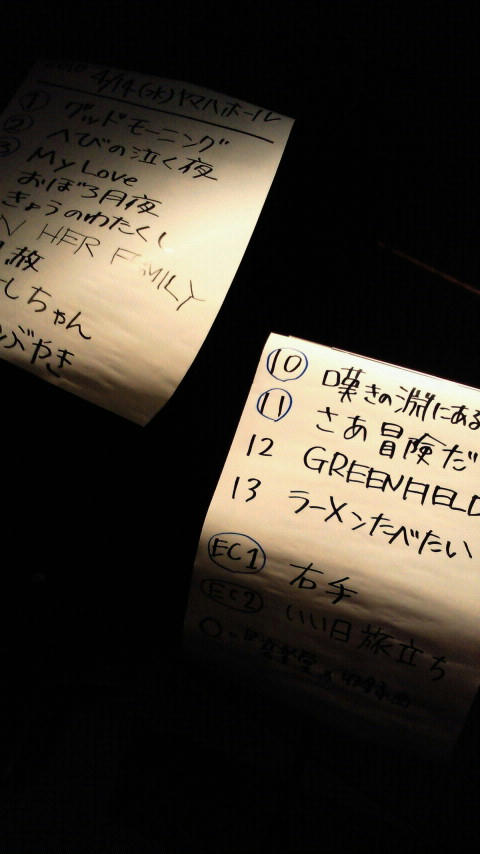 4/14(水)ヤマハホール
① グッドモーニング
② へびの泣く夜
③ My Love
おぼろ月夜
きょうのわたくし
N HER FAMILY
赦
しちゃん
ぶやき
⑩ 嘆きの淵にある
⑪ さあ冒険だ
12 GREENFIELD
13 ラーメンたべたい
EC1 右手
EC2 いい日旅立ち